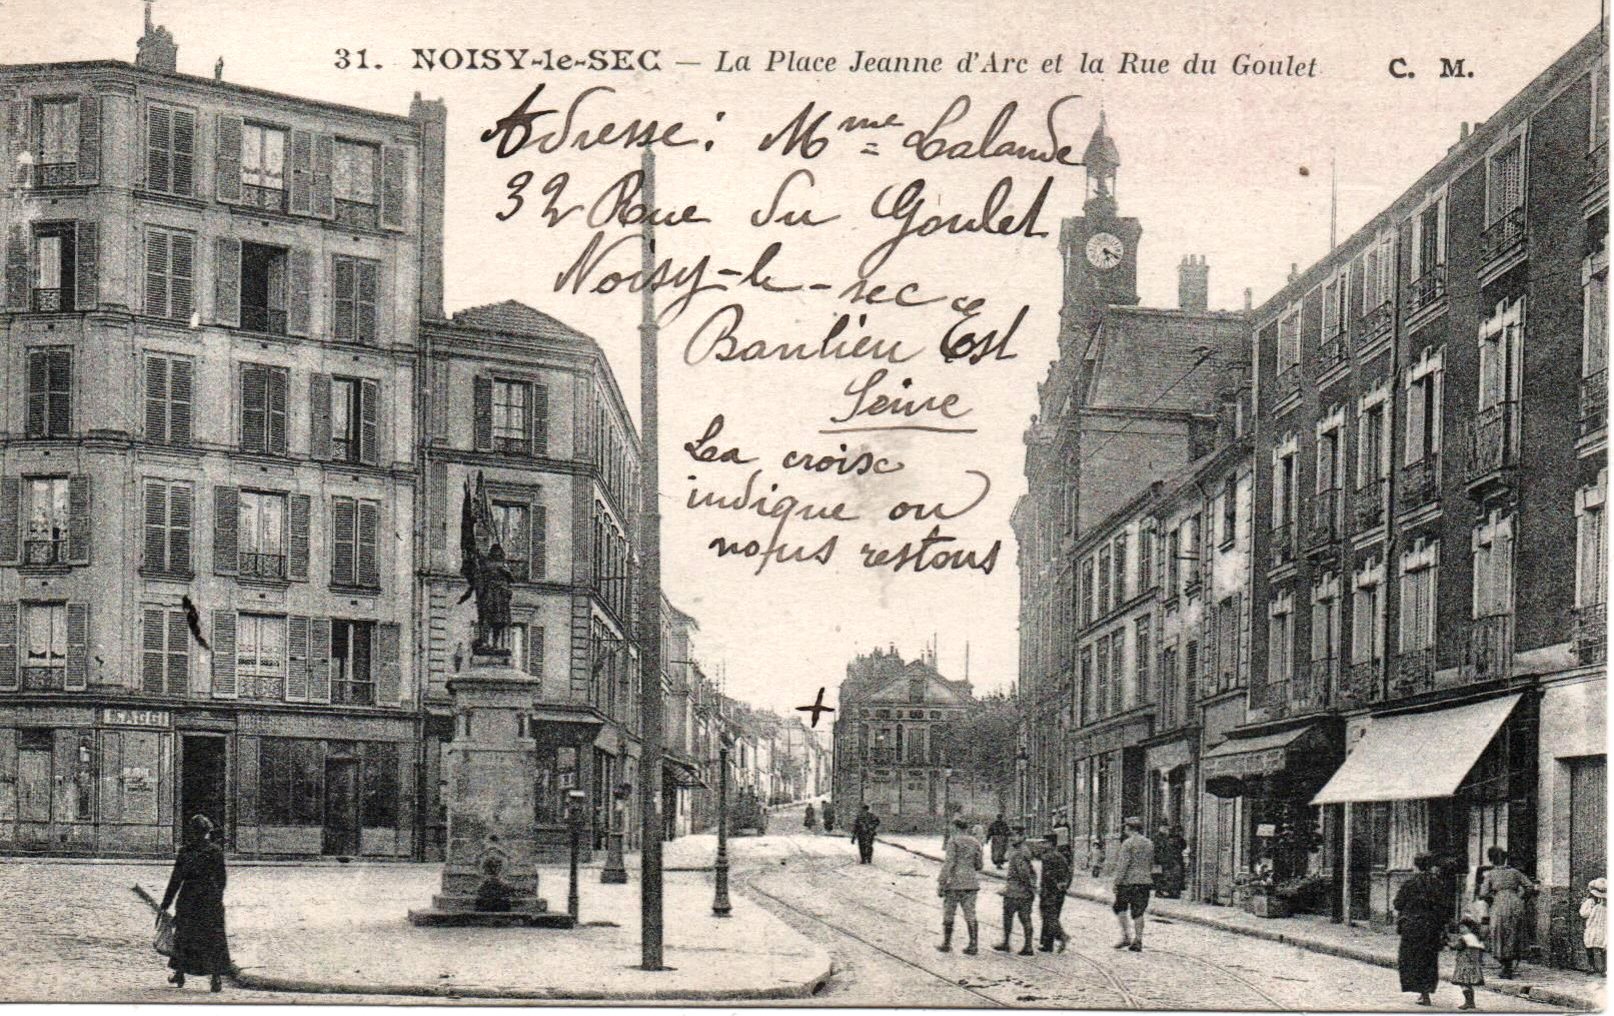 31. NOISY-le-SEC — La Place Jeanne d'Arc et la Rue du Goulet C. M.
Adresse : Mme Lalande
32 Rue du Goulet
Noisy-le-sec
Banlieue Est
Seine
La croise
indique ou
nous restons
+
MAGGI